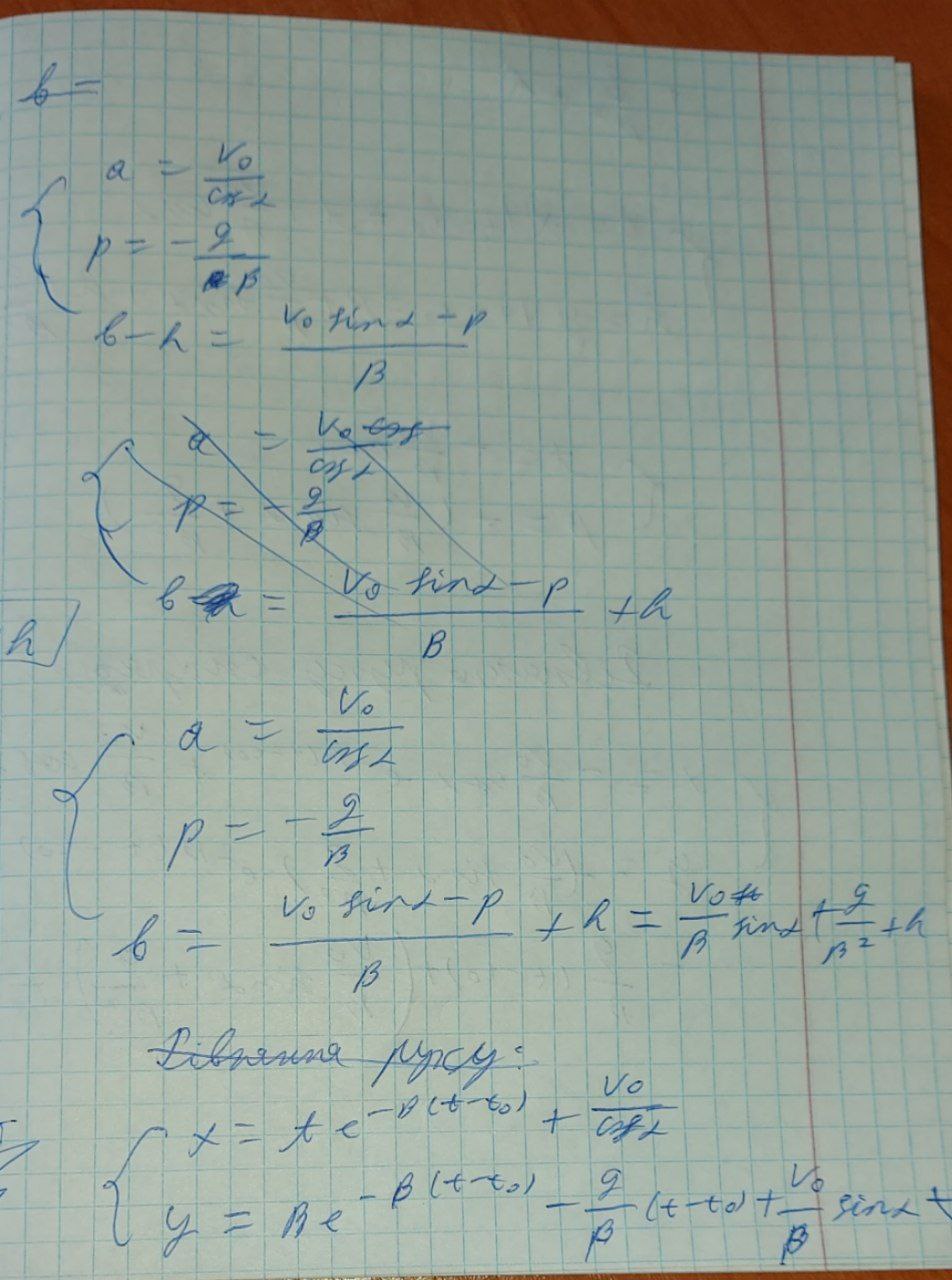 b =
a = v₀/cosα
p = - g/β
b - h = (v₀ sinα - p)/β
a = v₀ cos/cosα
p = - g/β
b = (v₀ sinα - p)/β + h
h
a = v₀/cosα
p = - g/β
b = (v₀ sinα - p)/β + h = v₀/β sinα + g/β² + h
Рівняння руху:
x = A e^(-β(t-t₀)) + v₀/cosα
y = B e^(-β(t-t₀)) - g/β (t-t₀) + v₀/β sinα +